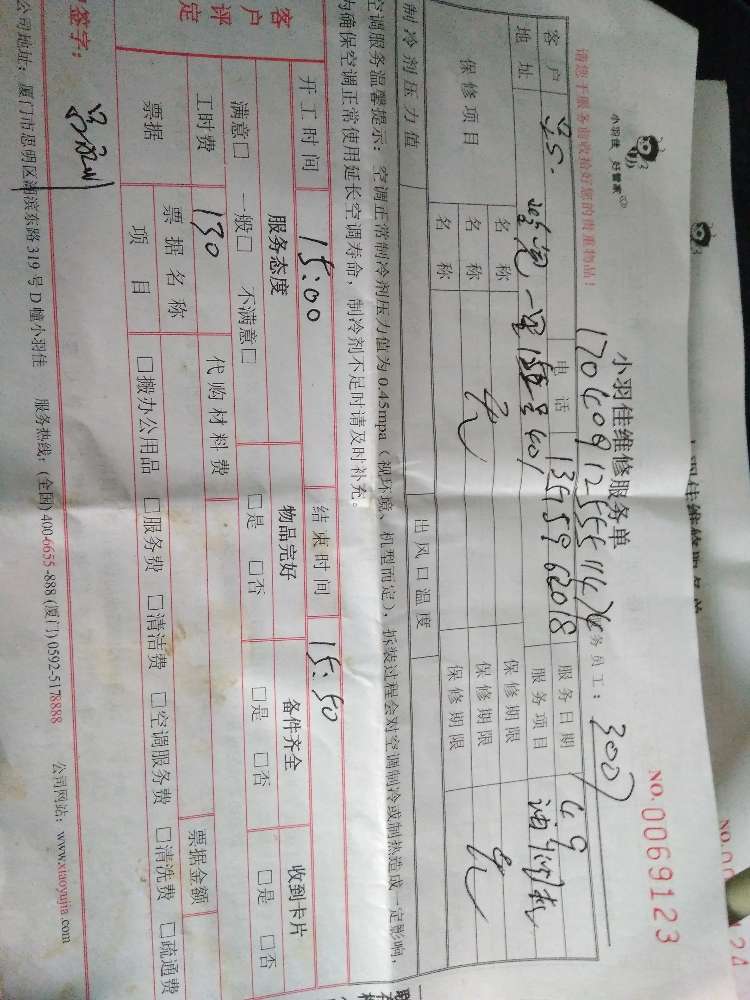 小羽佳 好管家
小羽佳维修服务单
NO.0069123
请您于服务前收拾好您的贵重物品!
170409125551474
务员工: 3007
客户
电话 13459 62018
服务日期 4.9
地址
服务项目
保修项目 名称 无 保修期限 无
名称 保修期限
名称 保修期限
制冷剂压力值 出风口温度
空调服务温馨提示: 空调正常制冷剂压力值为0.45mpa(视环境、机型而定), 拆装过程会对空调制冷或制热造成一定影响,
为确保空调正常使用延长空调寿命, 制冷剂不足时请及时补充。
开工时间 15:00 结束时间 15:50
客户评定
服务态度 物品完好 备件齐全 收到卡片
满意□ 一般□ 不满意□ □是 □否 □是 □否 □是 □否
工时费 130 代购材料费 票据金额
票据 票据名称
项目 □搬办公用品 □服务费 □清洁费 □空调服务费 □清洗费 □疏通费
签字:
公司地址: 厦门市思明区湖滨东路319号D幢小羽佳 服务热线: (全国)4006655-888 (厦门)0592-5178888 公司网站: www.xiaoyujia.com
羽佳维修服务单
NO.0
124